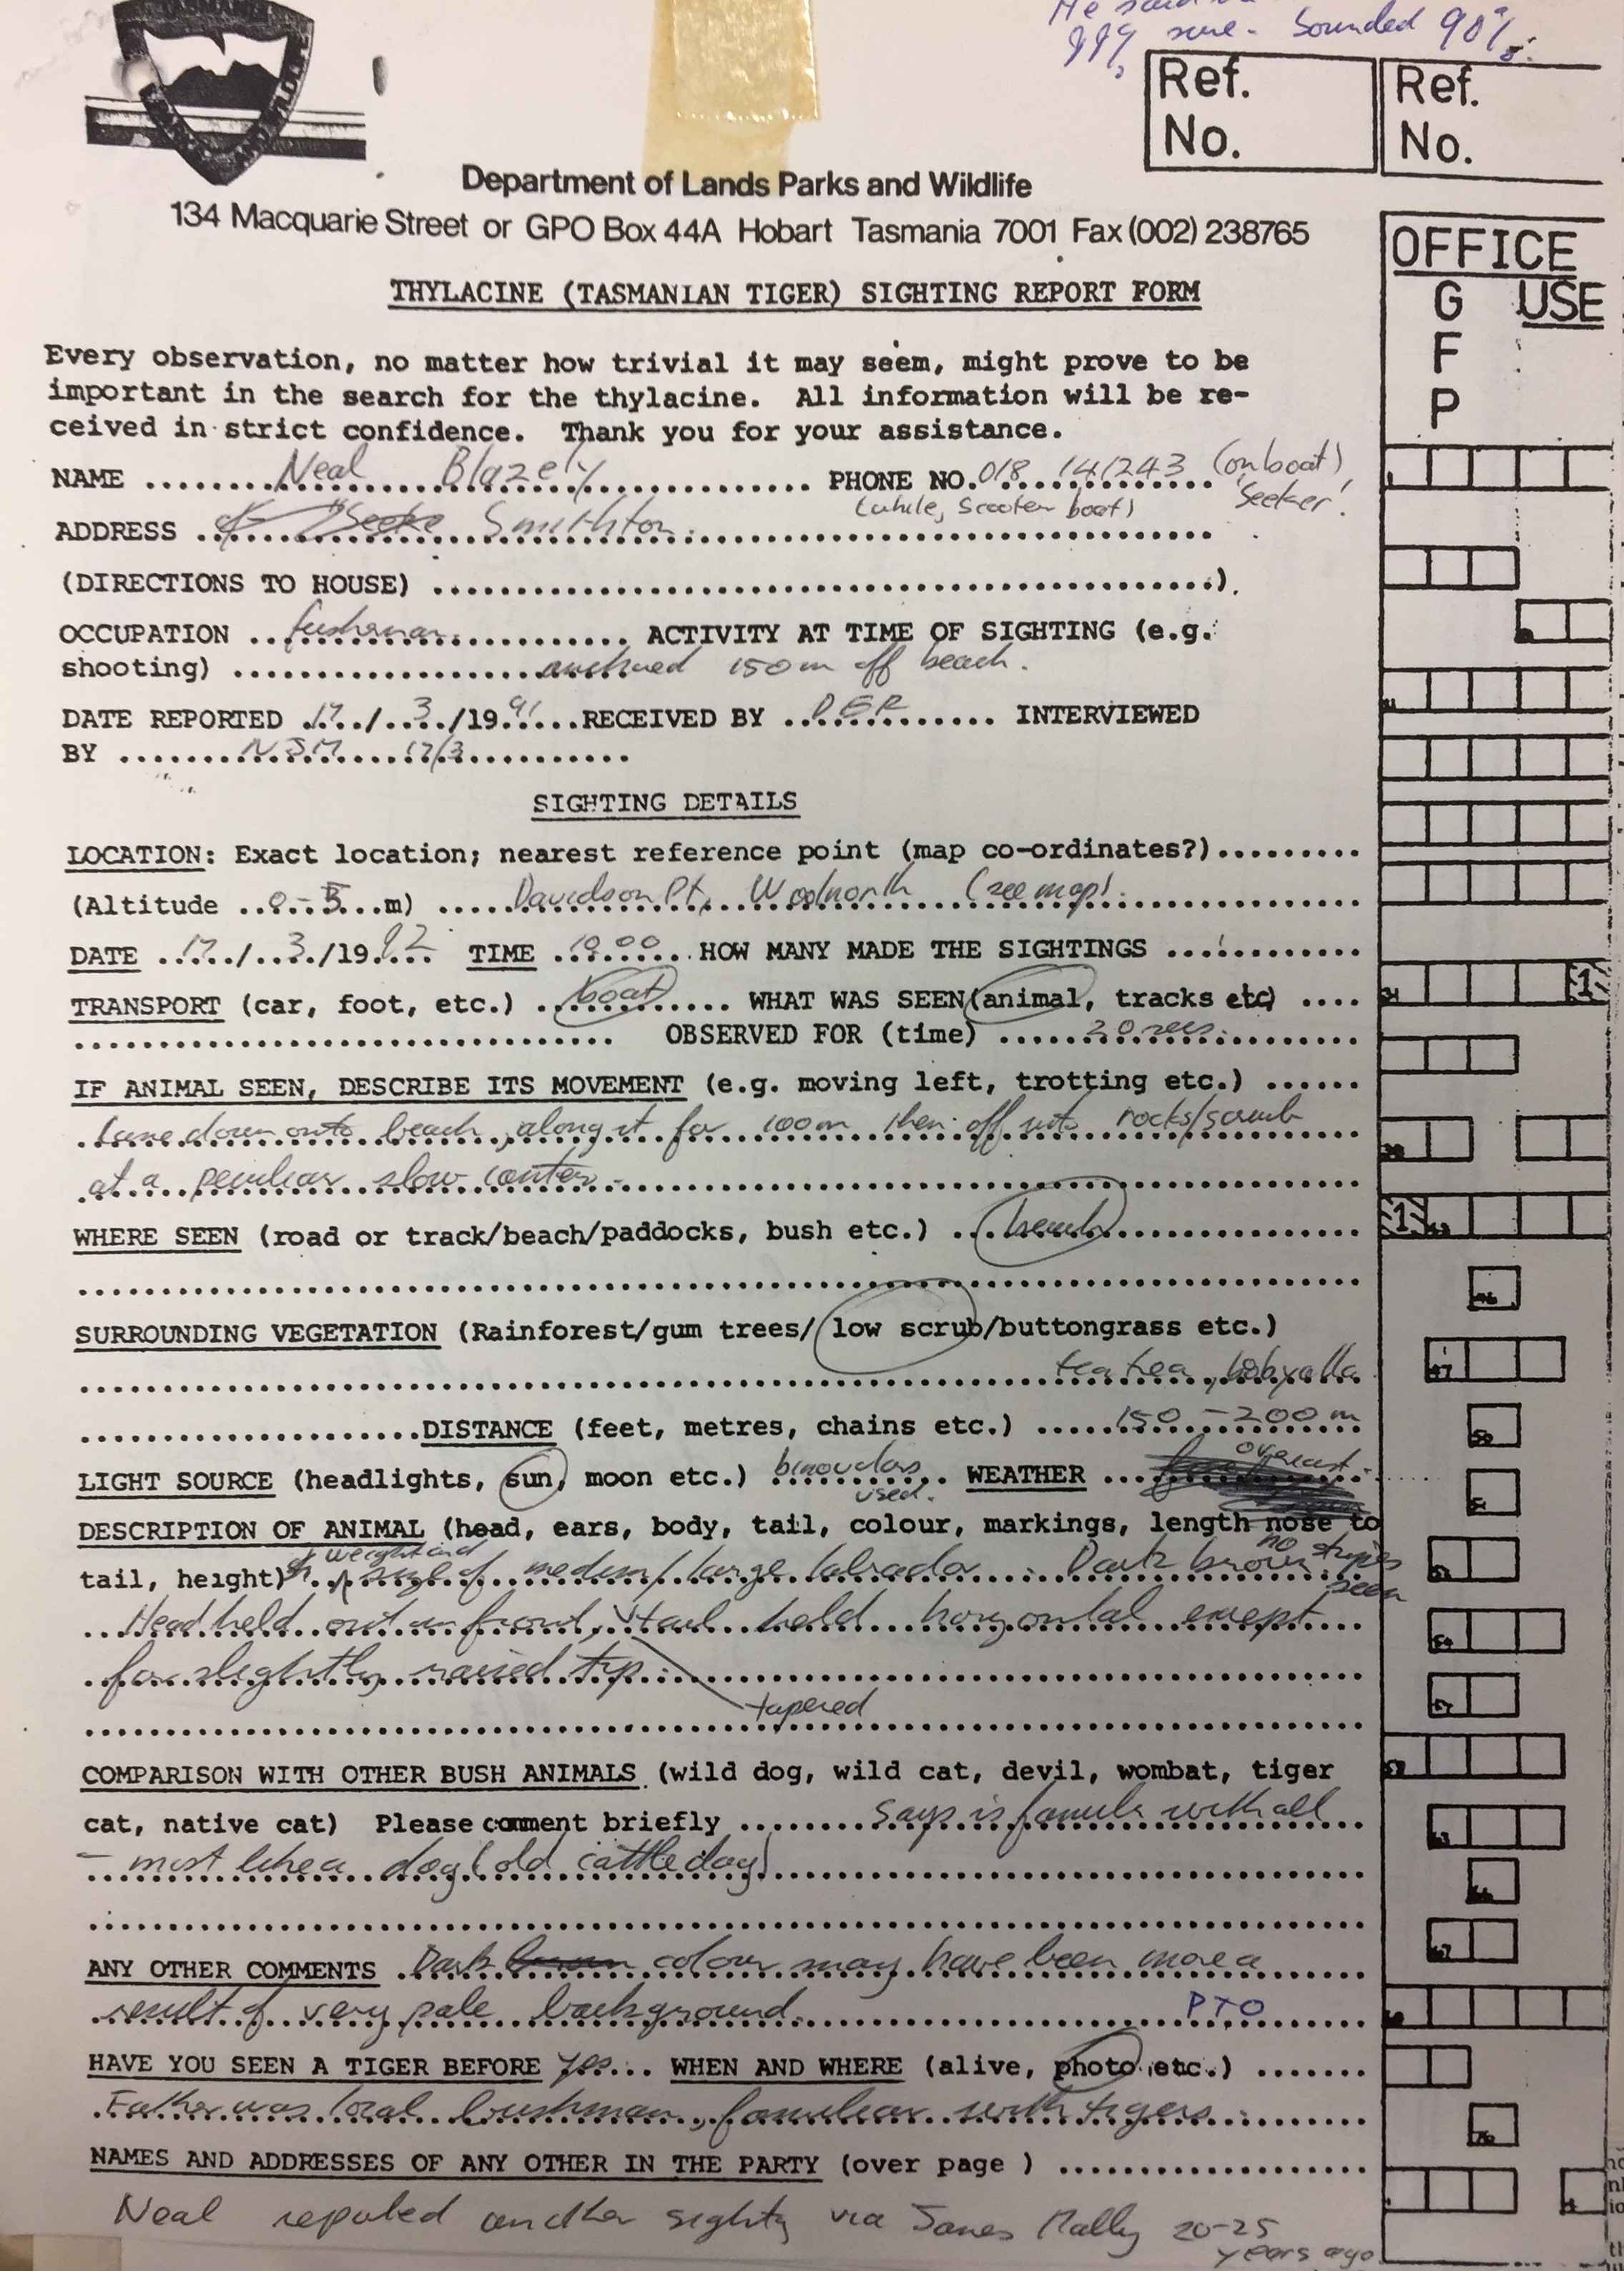 TASMANIA
He said
99% sure - sounded 90%.
Ref. No.
Ref. No.
Department of Lands Parks and Wildlife
134 Macquarie Street or GPO Box 44A Hobart Tasmania 7001 Fax (002) 238765
OFFICE USE
G
F
P
THYLACINE (TASMANIAN TIGER) SIGHTING REPORT FORM
Every observation, no matter how trivial it may seem, might prove to be
important in the search for the thylacine. All information will be re-
ceived in strict confidence. Thank you for your assistance.
NAME ..... Neal Blazely ..... PHONE NO. 018 141243 (on boat)
(white, Scooter boat) 'Seeker'
ADDRESS ..... "Seeke Smithton .....
(DIRECTIONS TO HOUSE) .....).
OCCUPATION ... fisherman ..... ACTIVITY AT TIME OF SIGHTING (e.g.
shooting) ..... anchored 150m off beach.
DATE REPORTED 17../..3../19.91...RECEIVED BY ...DER..... INTERVIEWED
BY .....NJM....17/3.....
SIGHTING DETAILS
LOCATION: Exact location; nearest reference point (map co-ordinates?).........
(Altitude ..0-5...m) ..... Davidson Pt, Woolnorth (see map).
DATE ..17./..3./19.92.. TIME ..10.00.. HOW MANY MADE THE SIGHTINGS ...1.....
TRANSPORT (car, foot, etc.) ..boat..... WHAT WAS SEEN(animal, tracks etc) ....
..... OBSERVED FOR (time) .....20 secs.....
IF ANIMAL SEEN, DESCRIBE ITS MOVEMENT (e.g. moving left, trotting etc.) ......
Came down onto beach, along it for 100m then off into rocks/scrub
at a peculiar slow canter.
WHERE SEEN (road or track/beach/paddocks, bush etc.) ...beach.....
SURROUNDING VEGETATION (Rainforest/gum trees/ low scrub/buttongrass etc.)
tea tea, bobyalla
.....DISTANCE (feet, metres, chains etc.) .....150 - 200 m
LIGHT SOURCE (headlights, sun, moon etc.) binoculars used. WEATHER ....overcast.
DESCRIPTION OF ANIMAL (head, ears, body, tail, colour, markings, length nose to
tail, height) ht weight and size of medium/large labrador. Dark brown no stripes seen
Head held out in front, tail held horizontal except
for slightly raised tip.
tapered
COMPARISON WITH OTHER BUSH ANIMALS (wild dog, wild cat, devil, wombat, tiger
cat, native cat) Please comment briefly ..... Says is familr with all
- most like a dog (old cattle dog)
ANY OTHER COMMENTS ..Dark brown colour may have been more a
result of very pale background. PTO
HAVE YOU SEEN A TIGER BEFORE yes.... WHEN AND WHERE (alive, photo etc.) .......
Father was local bushman, familiar with tigers.
NAMES AND ADDRESSES OF ANY OTHER IN THE PARTY (over page ) .....
Neal reported another sightg via James Mally 20-25
years ago